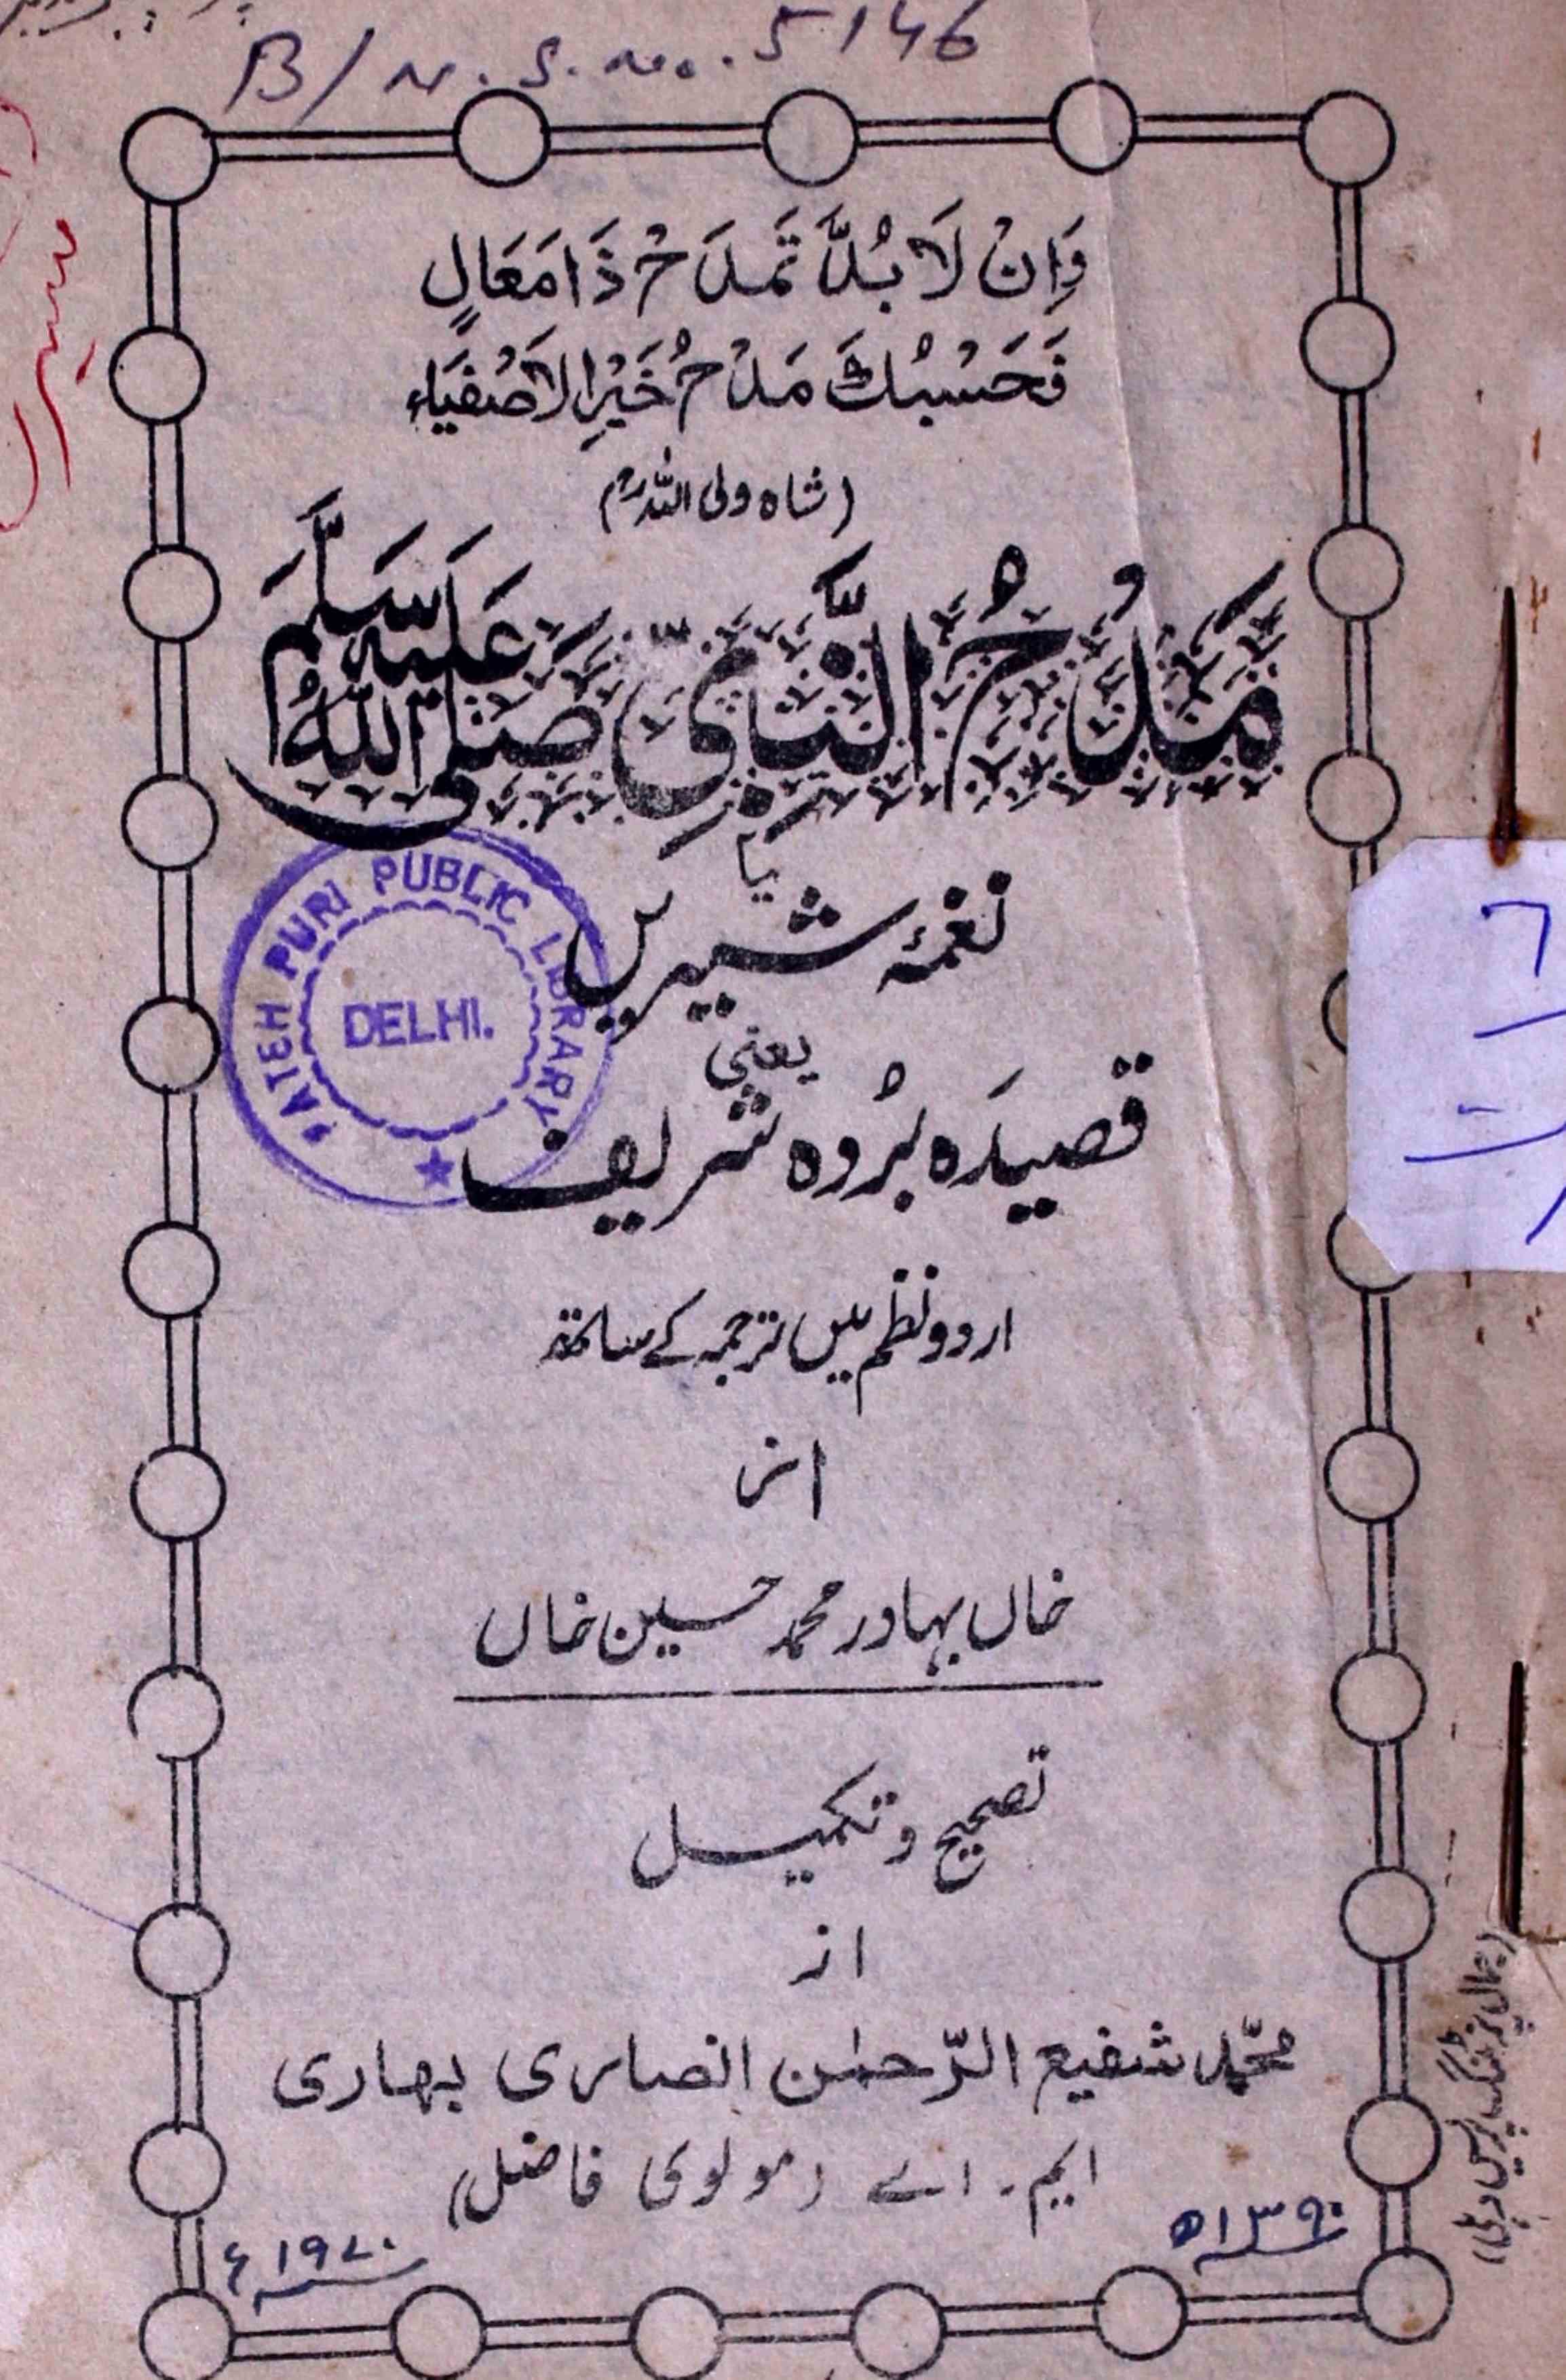 B/N.S.No. 5146
وَاِنْ لَا بُدَّ تَمْدَحْ ذَا مَعَالٍ
فَحَسْبُكَ مَدْحُ خَيْرِ الْاَصْفِيَاءِ
(شاہ ولی اللہؒ)
مَدْحُ النَّبِیِّ صَلَّی اللہُ عَلَیْہِ وَسَلَّمَ
یا
نغمۂ شیریں
یعنی
قصیدہ بُردہ شریف
FATEH PURI PUBLIC LIBRARY
DELHI.
اردو نظم میں ترجمہ کے ساتھ
از
خاں بہادر محمد حسین خاں
تصحیح و تکمیل
از
محمّد شفیع الرّحمٰن انصاری بہاری
ایم. اے (مولوی فاضل)
۱۳۹۰ھ
۱۹۷۰ء
(جمال پرنٹنگ پریس دہلی)